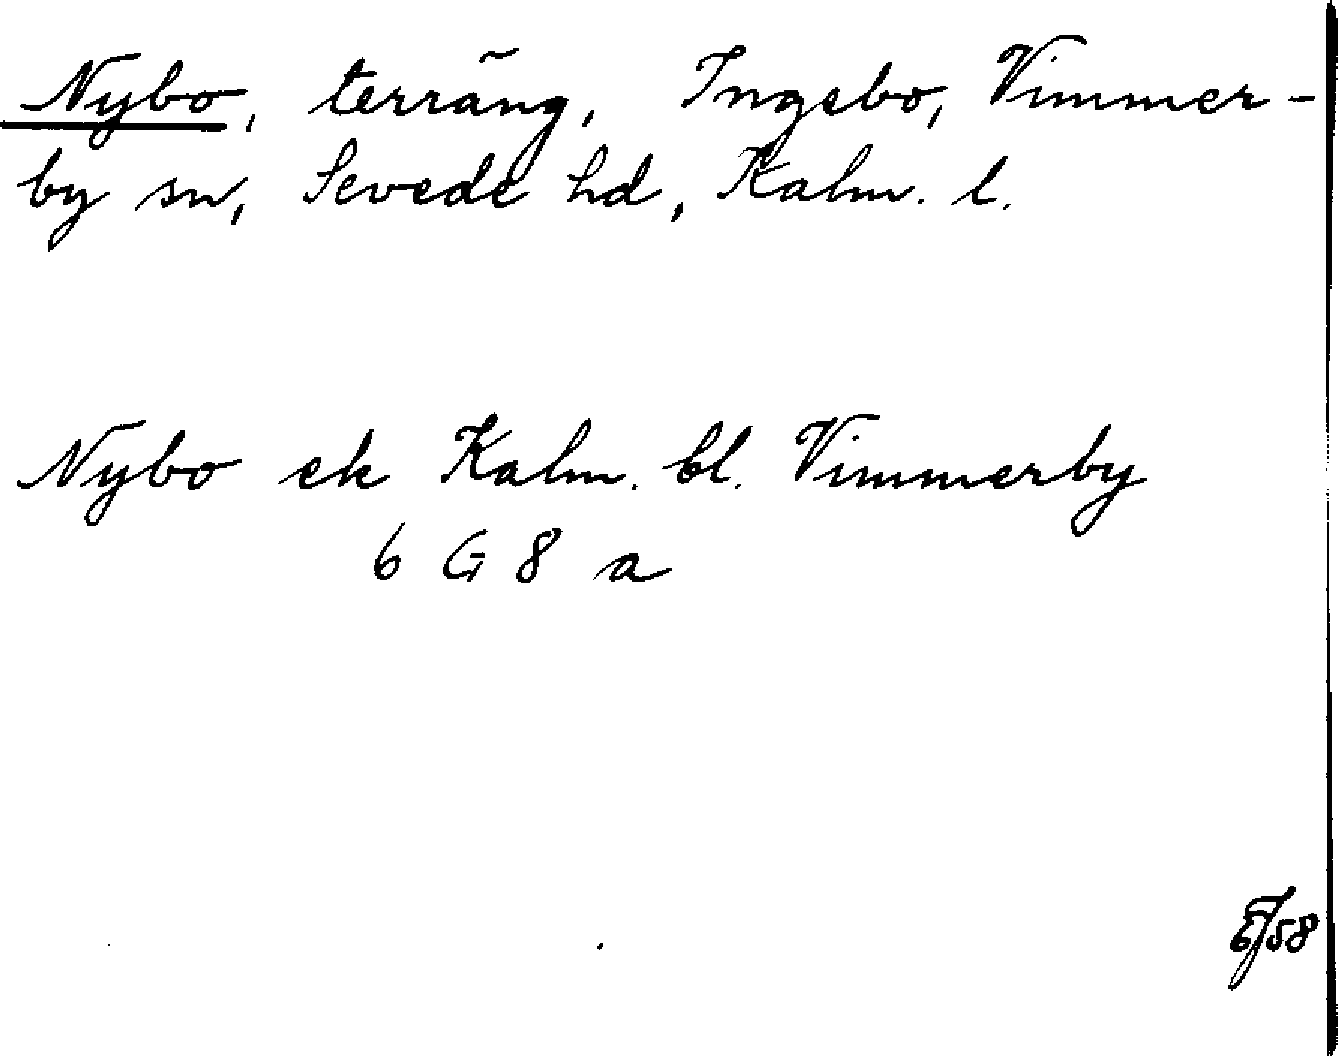 Nybo, terräng, Ingebo, Vimmer-
by sn, Sevede hd, Kalm. l.
Nybo ek Kalm. bl. Vimmerby
6 G 8 a